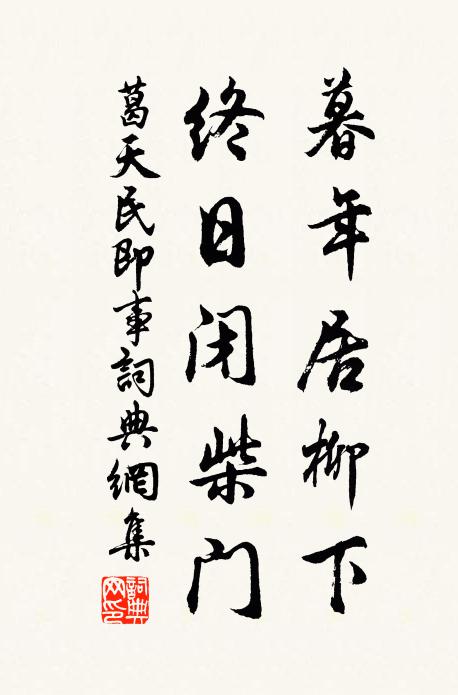 暮年居柳下
终日闭柴门
葛天民即事詞典網集
詞典
网印